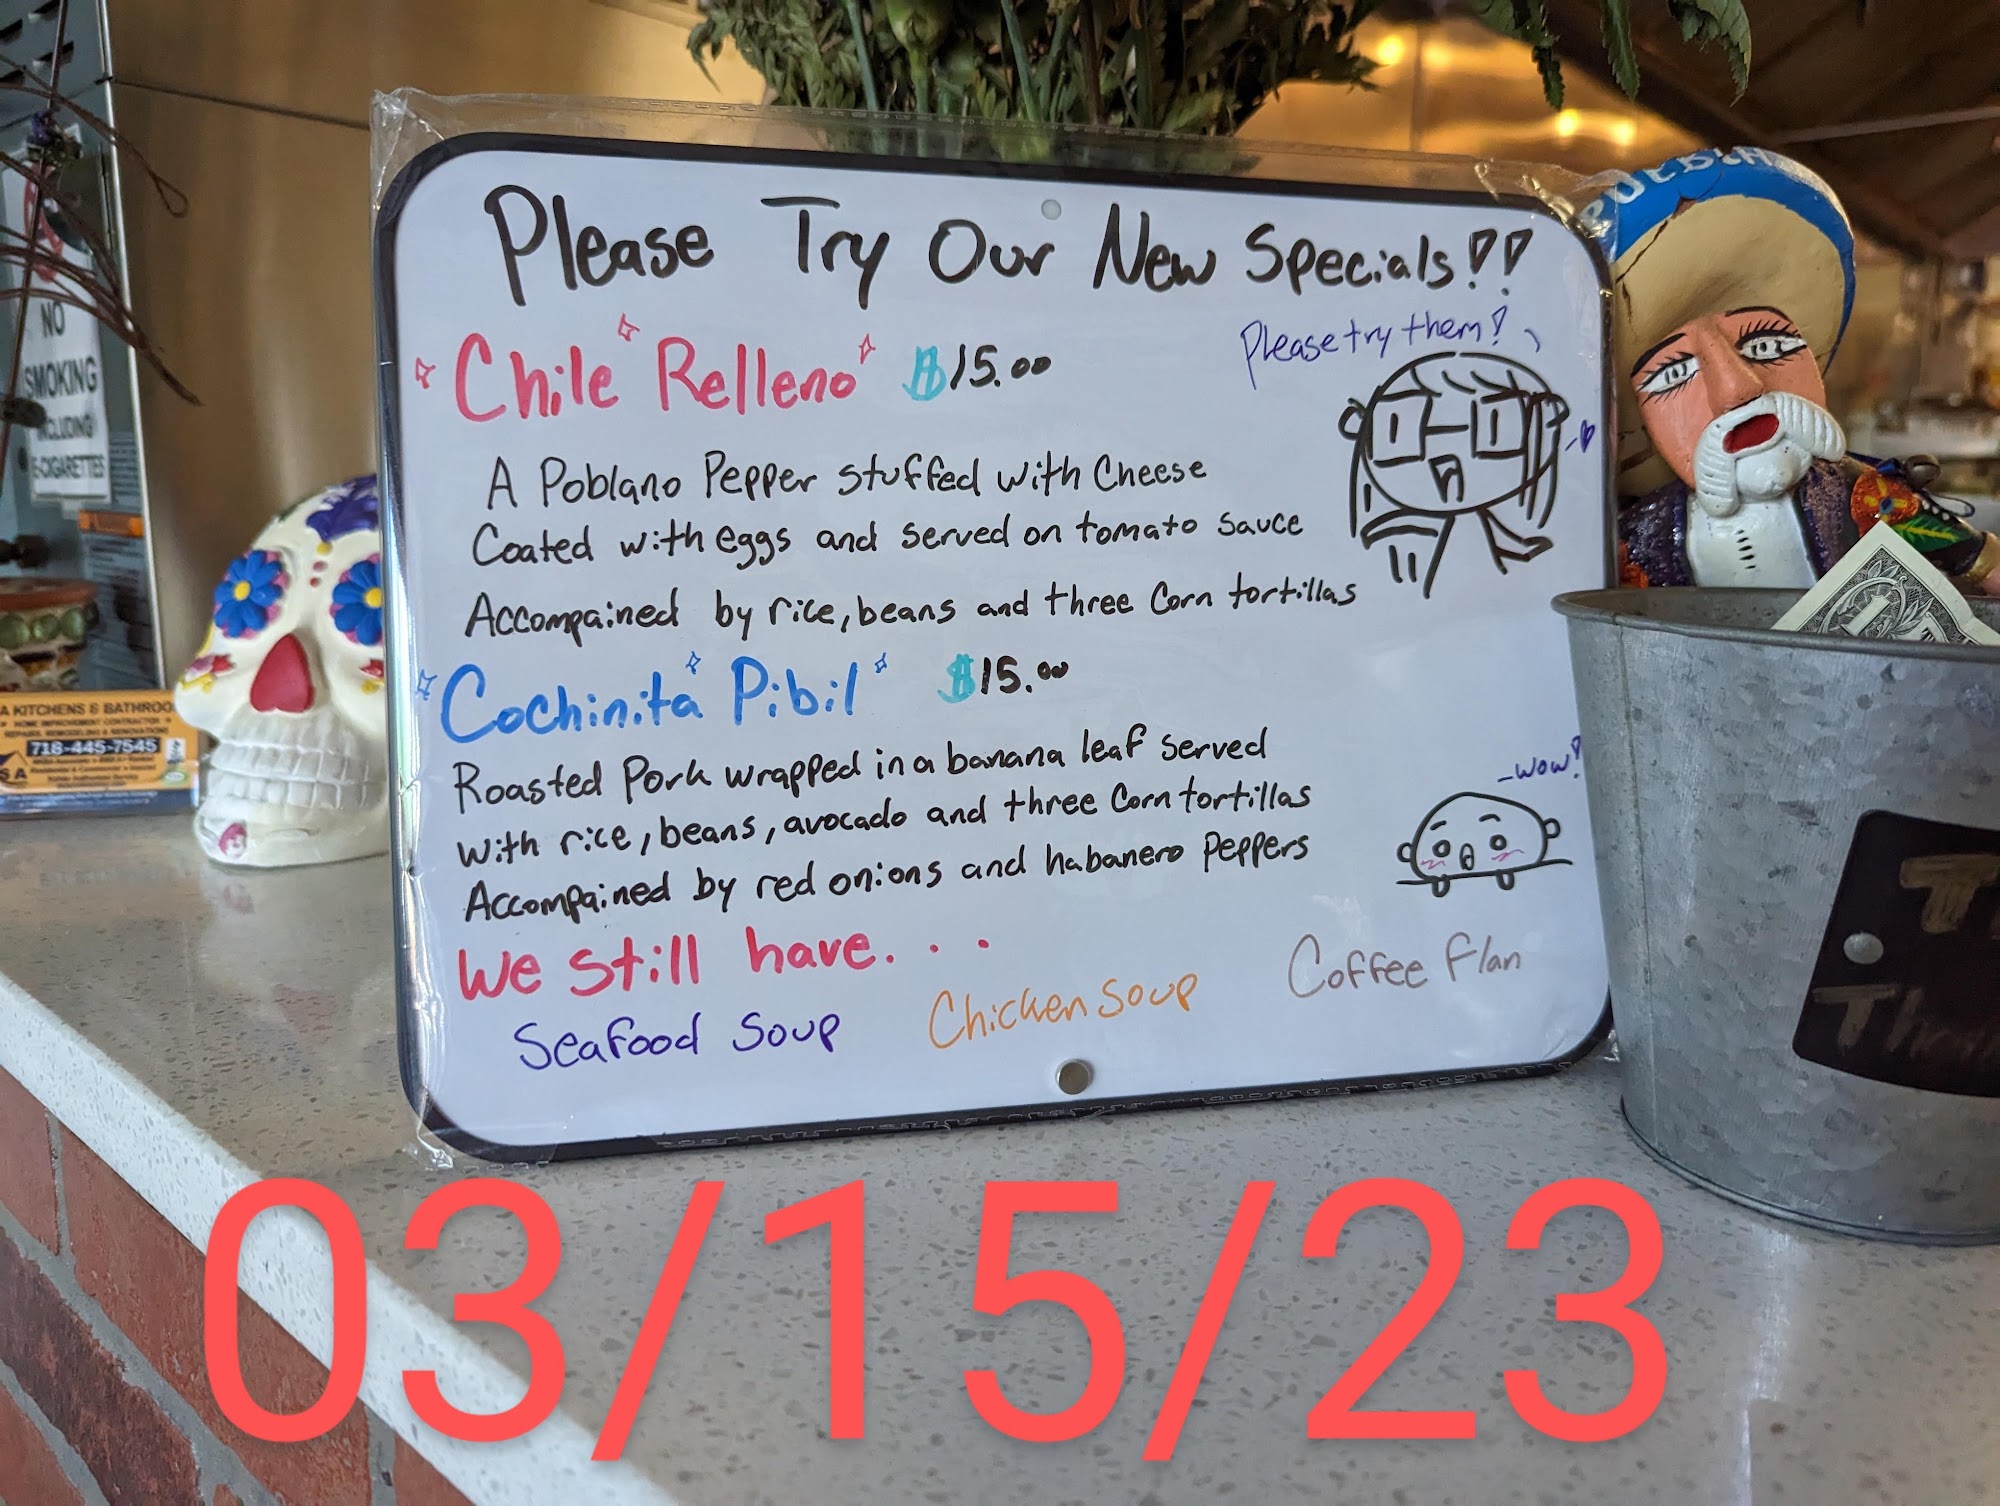 Please Try Our New Specials!!
Chile Relleno $15.00
Please try them!
A Poblano Pepper stuffed with Cheese
Coated with eggs and served on tomato sauce
Accompained by rice, beans and three Corn tortillas
Cochinita Pibil $15.00
Roasted Pork wrapped in a banana leaf served
with rice, beans, avocado and three Corn tortillas
Accompained by red onions and habanero Peppers
-wow!
We still have...
Seafood Soup Chicken Soup Coffee Flan
NO
SMOKING
INCLUDING
E-CIGARETTES
A KITCHENS & BATHROO
HOME IMPROVEMENT CONTRACTOR
REPAIRS, REMODELING & RENOVATIONS
718-445-7545
SA
PUEBLA
1
T
Than
03/15/23